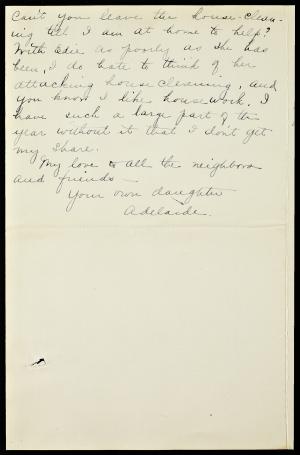 Can't you leave the house-clean-
ing till I am at home to help?
With Edie as poorly as she has
been, I do hate to think of her
attacking housecleaning, and
you know I like housework. I
have such a large part of the
year without it that I don't get
my share.
My love to all the neighbors
and friends —
Your own daughter
Adelaide.